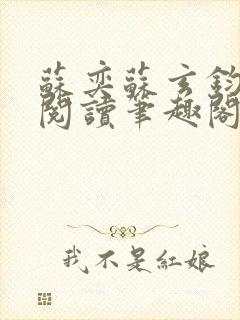 蘇奕蘇玄鈞
閱讀筆趣閣
我不是紅娘